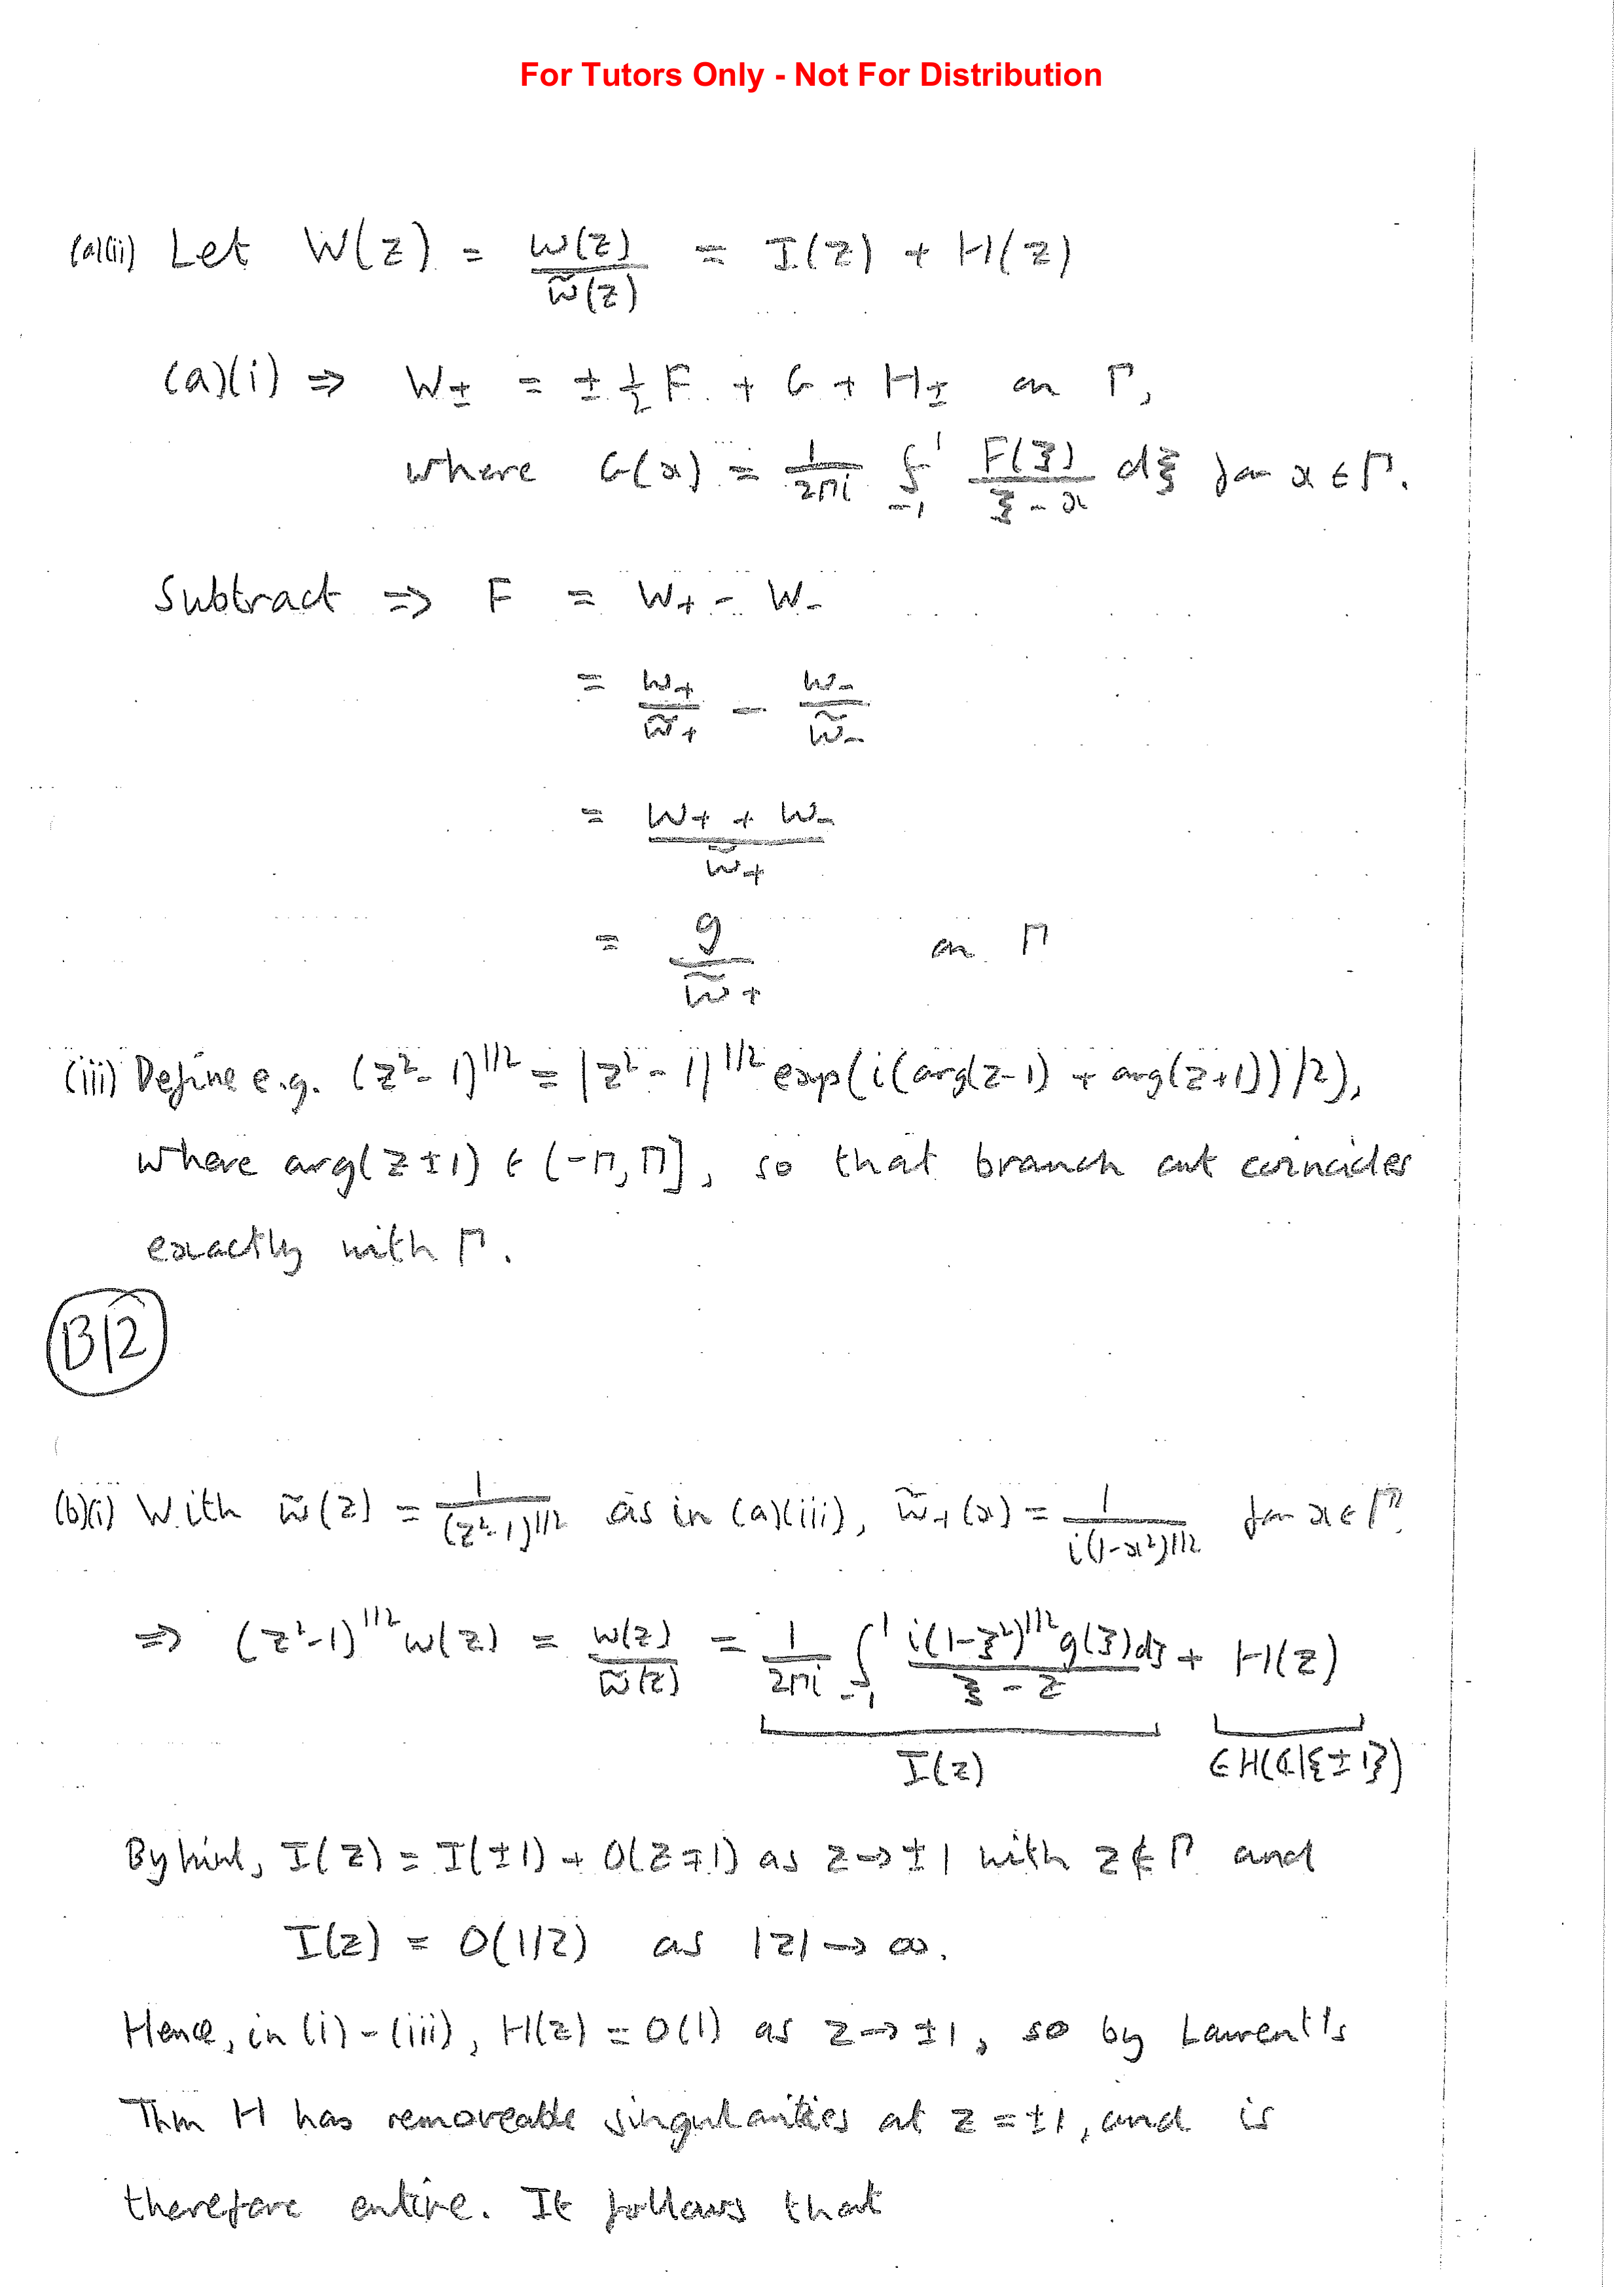 For Tutors Only - Not For Distribution
(a)(ii) Let W(z) = w(z)/w̃(z) = I(z) + H(z)
(a)(i) ⇒ W± = ± ½ F + G + H± on Γ,
where G(x) = 1/(2πi) ⨍_{-1}^{1} F(ξ)/(ξ - x) dξ for x ∈ Γ.
Subtract ⇒ F = W₊ - W₋
= w₊/w̃₊ - w₋/w̃₋
= (w₊ + w₋)/w̃₊
= g/w̃₊ on Γ
(iii) Define e.g. (z²-1)^{1/2} = |z²-1|^{1/2} exp(i(arg(z-1) + arg(z+1))/2),
where arg(z±1) ∈ (-π, π], so that branch cut coincides
exactly with Γ.
B12
(b)(i) With w̃(z) = 1/(z²-1)^{1/2} as in (a)(iii), w̃₊(x) = 1/(i(1-x²)^{1/2}) for x ∈ Γ.
⇒ (z²-1)^{1/2} w(z) = w(z)/w̃(z) = 1/(2πi) ∫_{-1}^{1} i(1-ξ²)^{1/2} g(ξ)dξ/(ξ - z) + H(z)
I(z) ∈ H(ℂ\{±1})
By hint, I(z) = I(±1) + O(z∓1) as z → ±1 with z ∉ Γ and
I(z) = O(1/z) as |z| → ∞.
Hence, in (i) - (iii), H(z) = O(1) as z → ±1, so by Laurent's
Thm H has removeable singularities at z = ±1, and is
therefore entire. It follows that